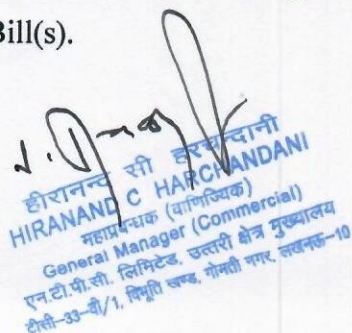 Bill(s).
हीरानन्द सी हरचन्दानी
HIRANAND C HARCHANDANI
महाप्रबन्धक (वाणिज्यिक)
General Manager (Commercial)
एन.टी.पी.सी. लिमिटेड, उत्तरी क्षेत्र मुख्यालय
टीसी-33-वी/1, विभूति खण्ड, गोमती नगर, लखनऊ-10